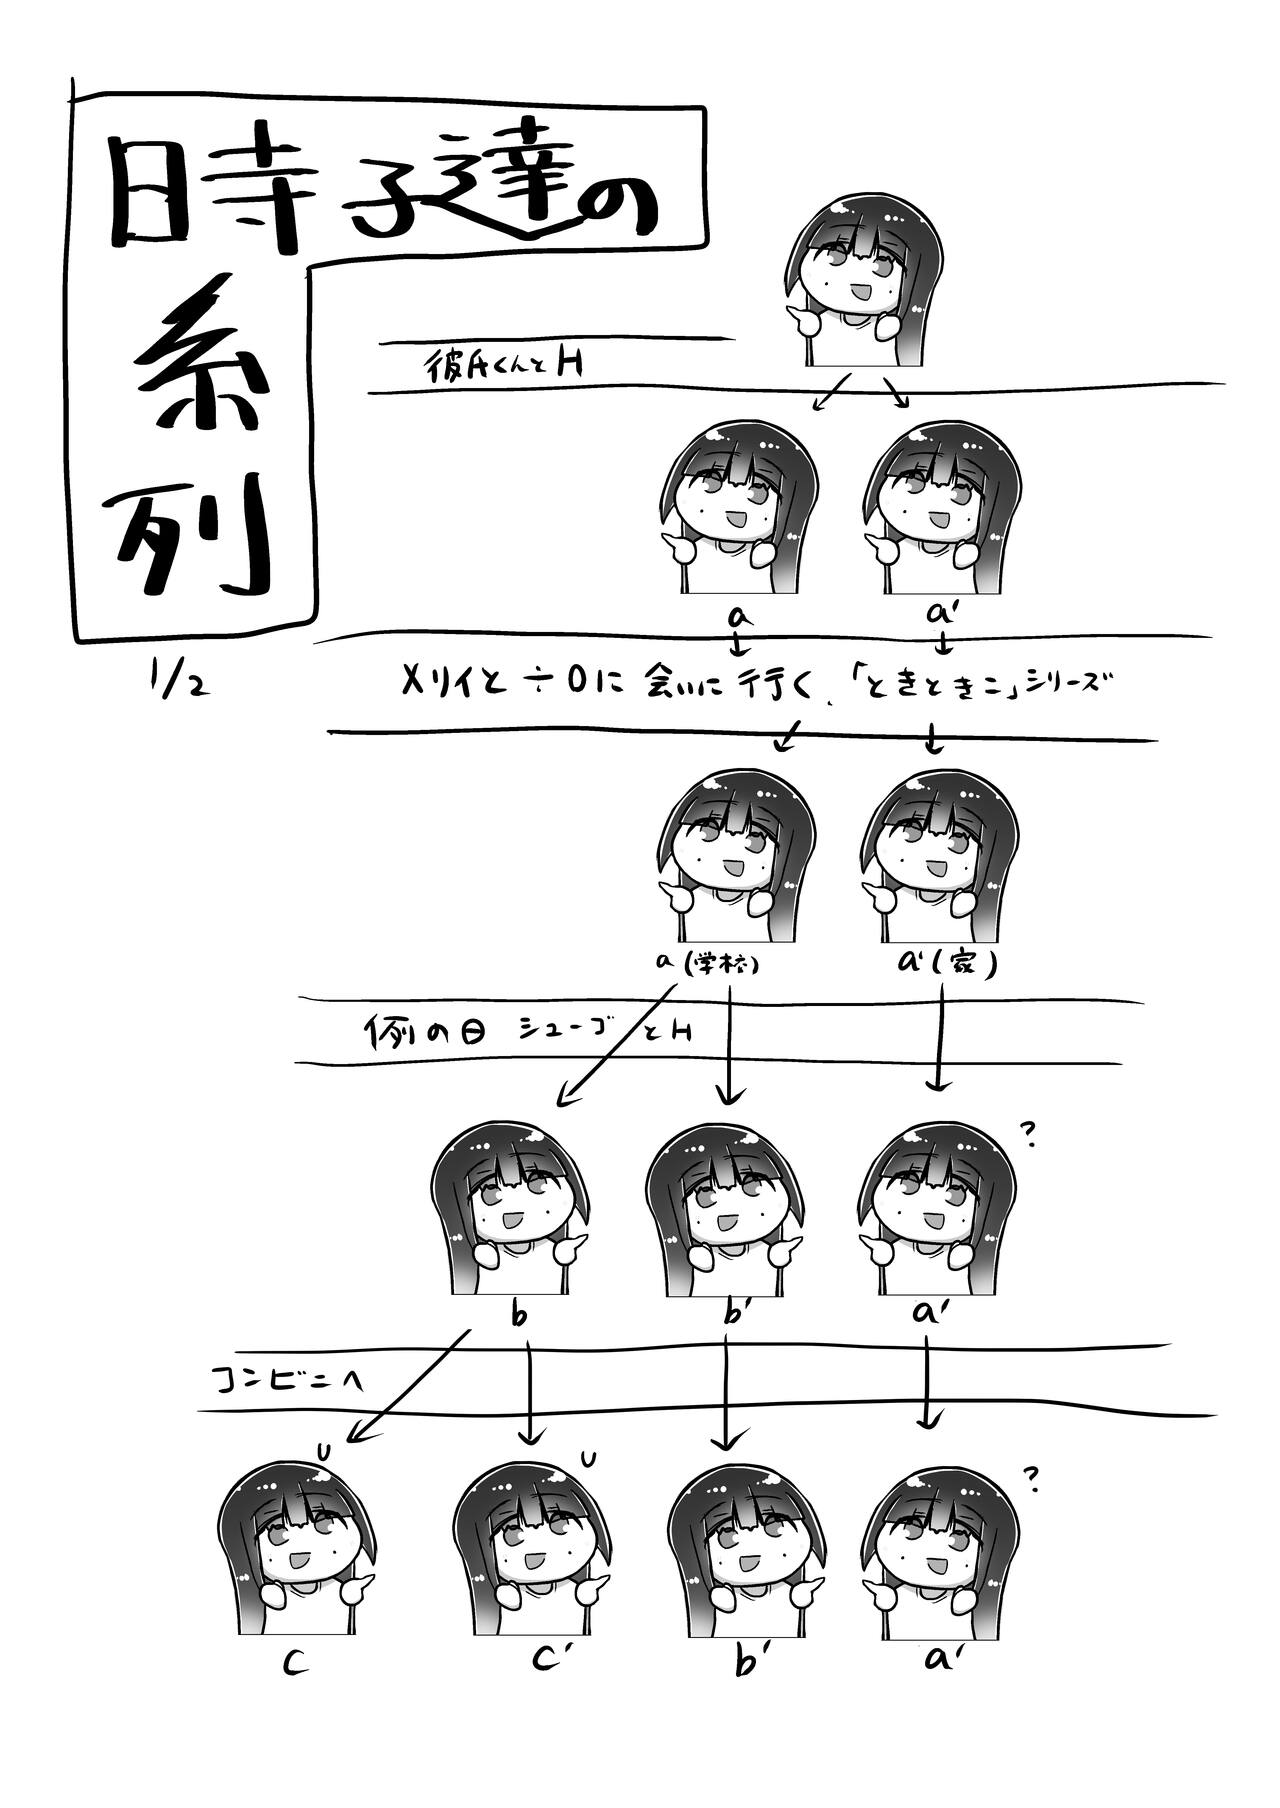 時子達の
系
列
1/2
彼氏くんとH
a a'
メリイと÷0に会いに行く、「ときときこ」シリーズ
a(学校) a'(家)
例の日 シューゴとH
?
b b' a'
コンビニへ
?
c c' b' a'